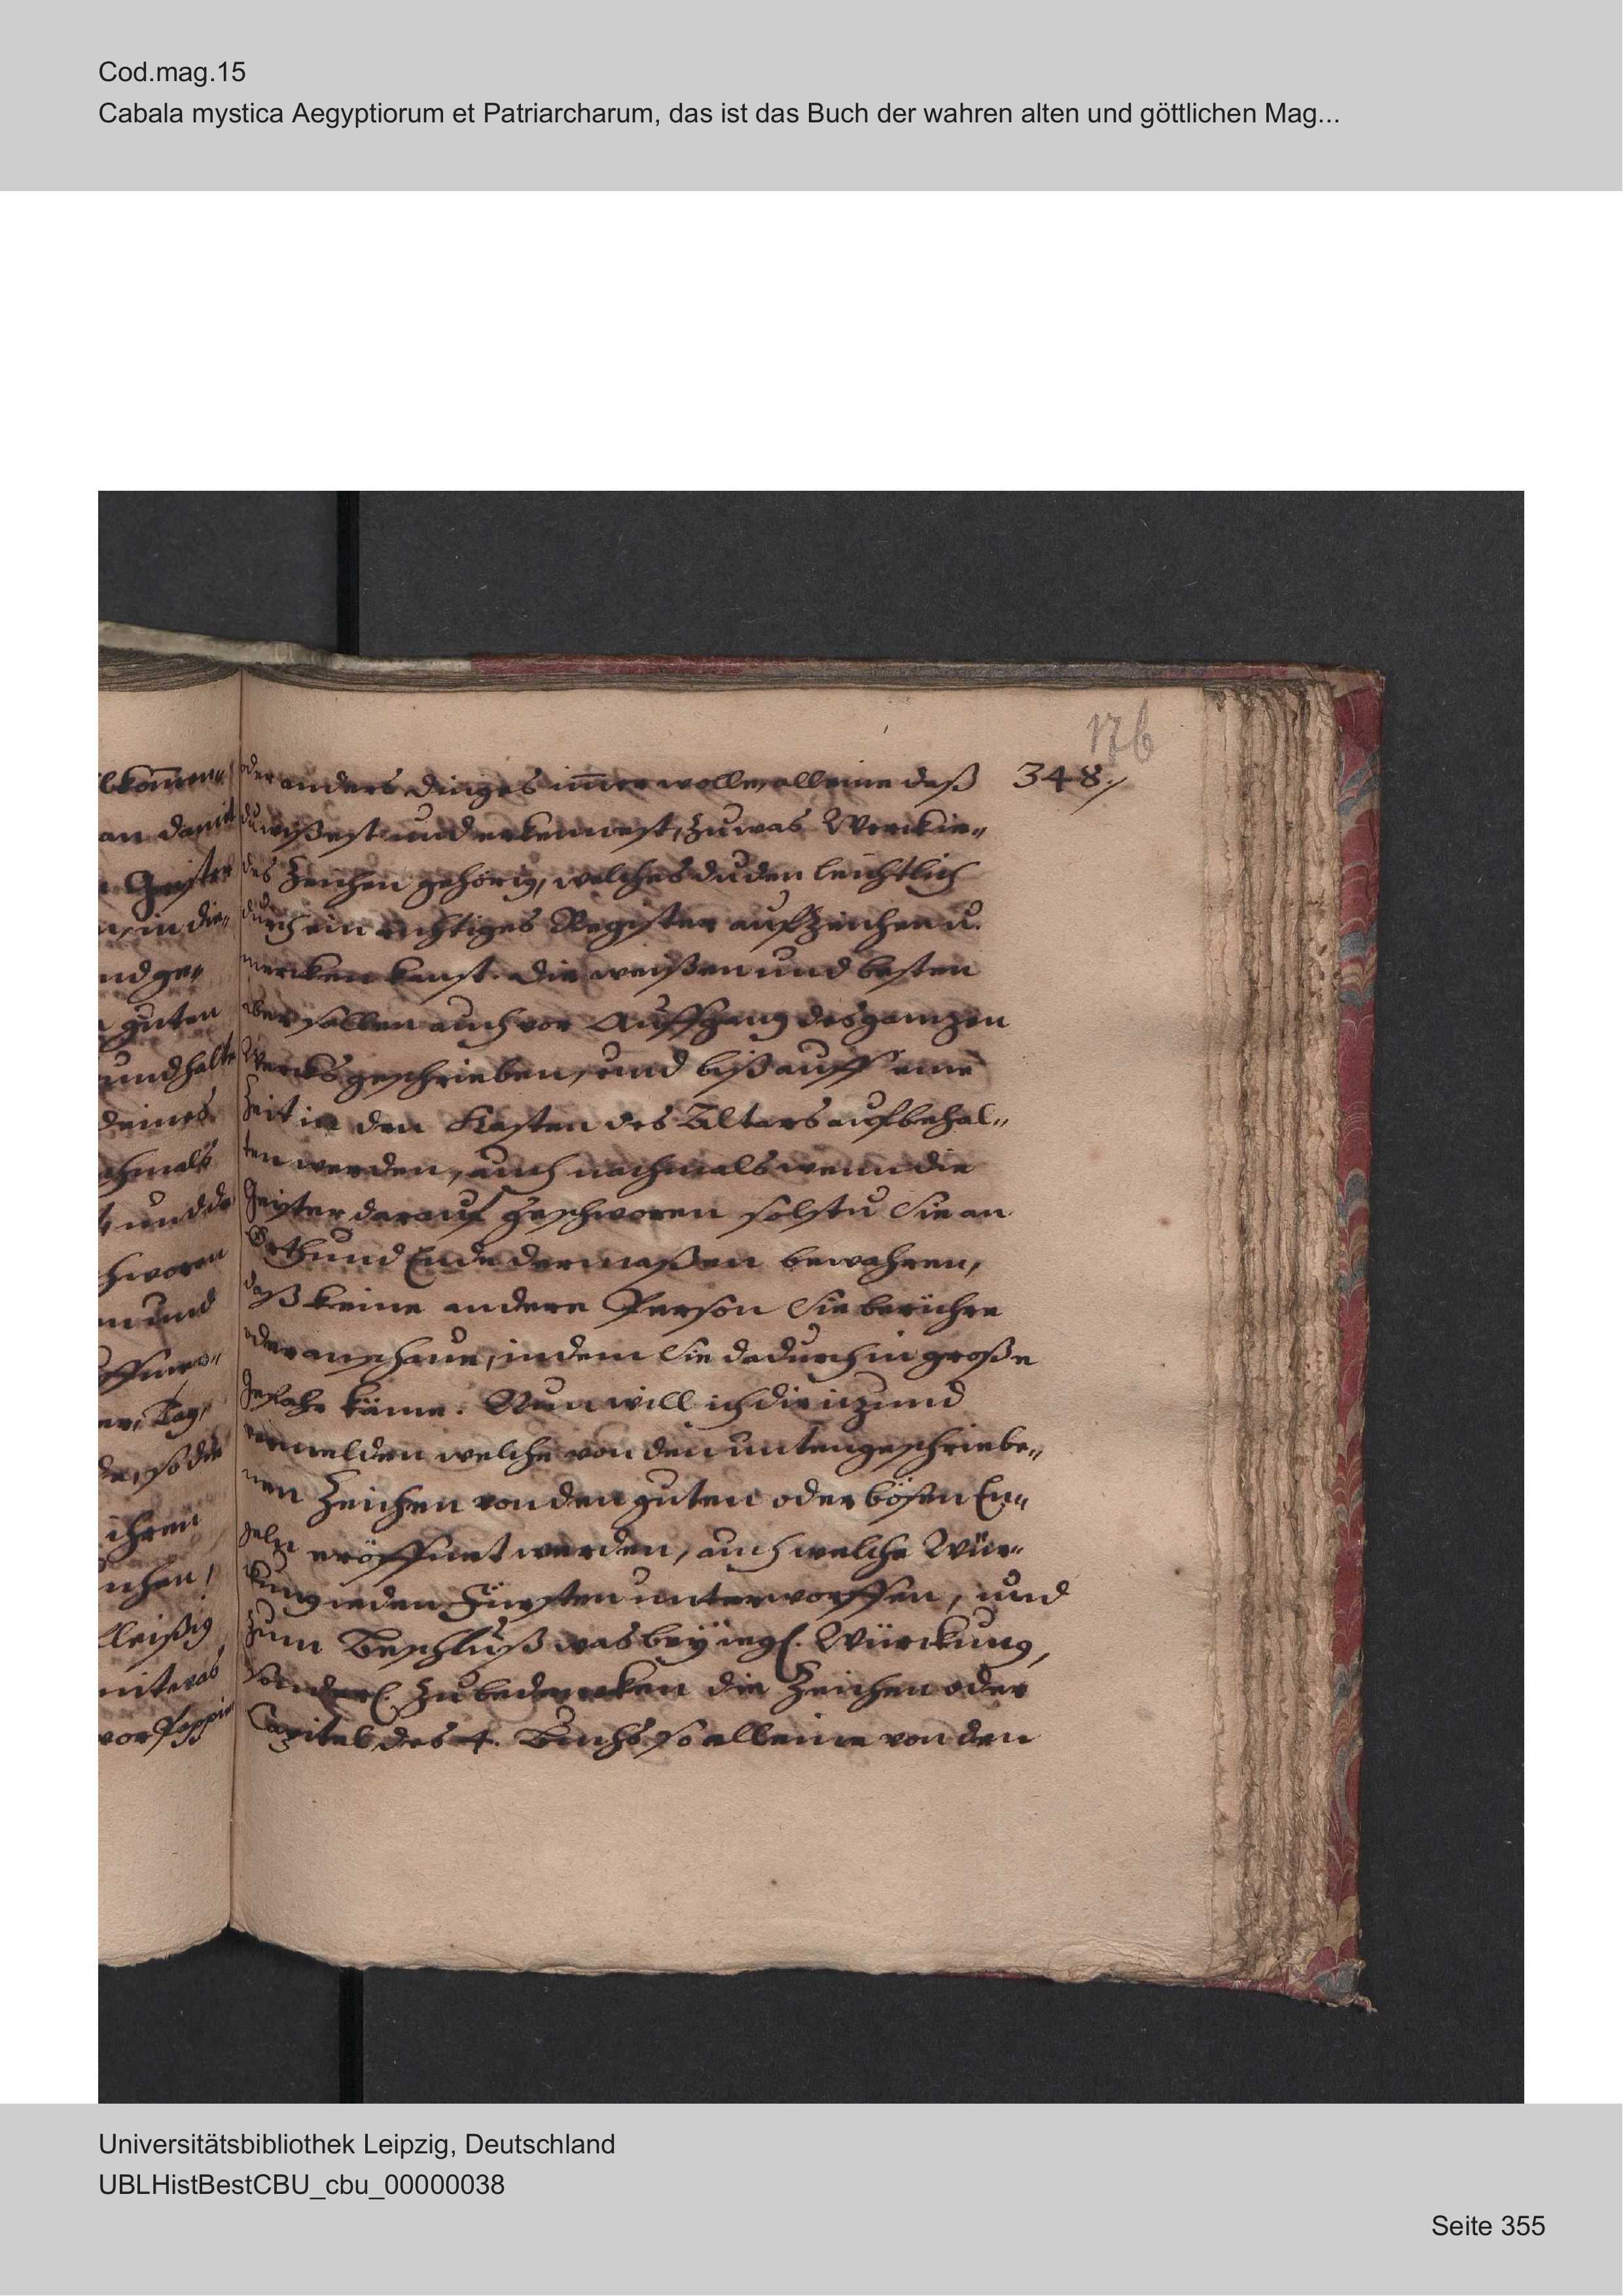 Cod.mag.15
Cabala mystica Aegyptiorum et Patriarcharum, das ist das Buch der wahren alten und göttlichen Mag...
176
348.
oder anders dinges im̄er wolle, alleine daß
du wißest und erkennest, zu was Werck ie„
des Zeichen gehörig, welches du den leichtlich
durch ein richtiges Register aufzeichen u.
mercken kanst. Die weißen und besten
aber sollen auch vor Auffgang des gantzen
Wercks geschrieben, und biß auff eine
Zeit in den Kasten des Altars aufbehal„
ten werden, auch nachmals wenn die
Geister darauf geschworen solstu Sie an
Orth und Ende dermaßen bewahren,
daß keine andere Person Sie berühre
oder anschaue, indem Sie dadurch in große
gefahr käme. Nun will ich dir itzund
vermelden welche von den unten geschriebe„
nen Zeichen von den guten oder bösen En„
geln eröffnet werden, auch welche Wür„
kung ieden Fürsten unterworffen, und
zum Beschluß was bey iegl. Würckung,
sonderl. zu bedencken die Zeichen oder
Capitel des 4. Buchs so alleine von den
lkom̄en„
an damit
Geister
in die„
nd ge„
guten
und halte
deines
chmals
t und da
hworen
n und
öffnen„
er, Tag,
de, so die
ihren
chen,
fleißig
mit was
vor Pappir
Universitätsbibliothek Leipzig, Deutschland
UBLHistBestCBU_cbu_00000038
Seite 355